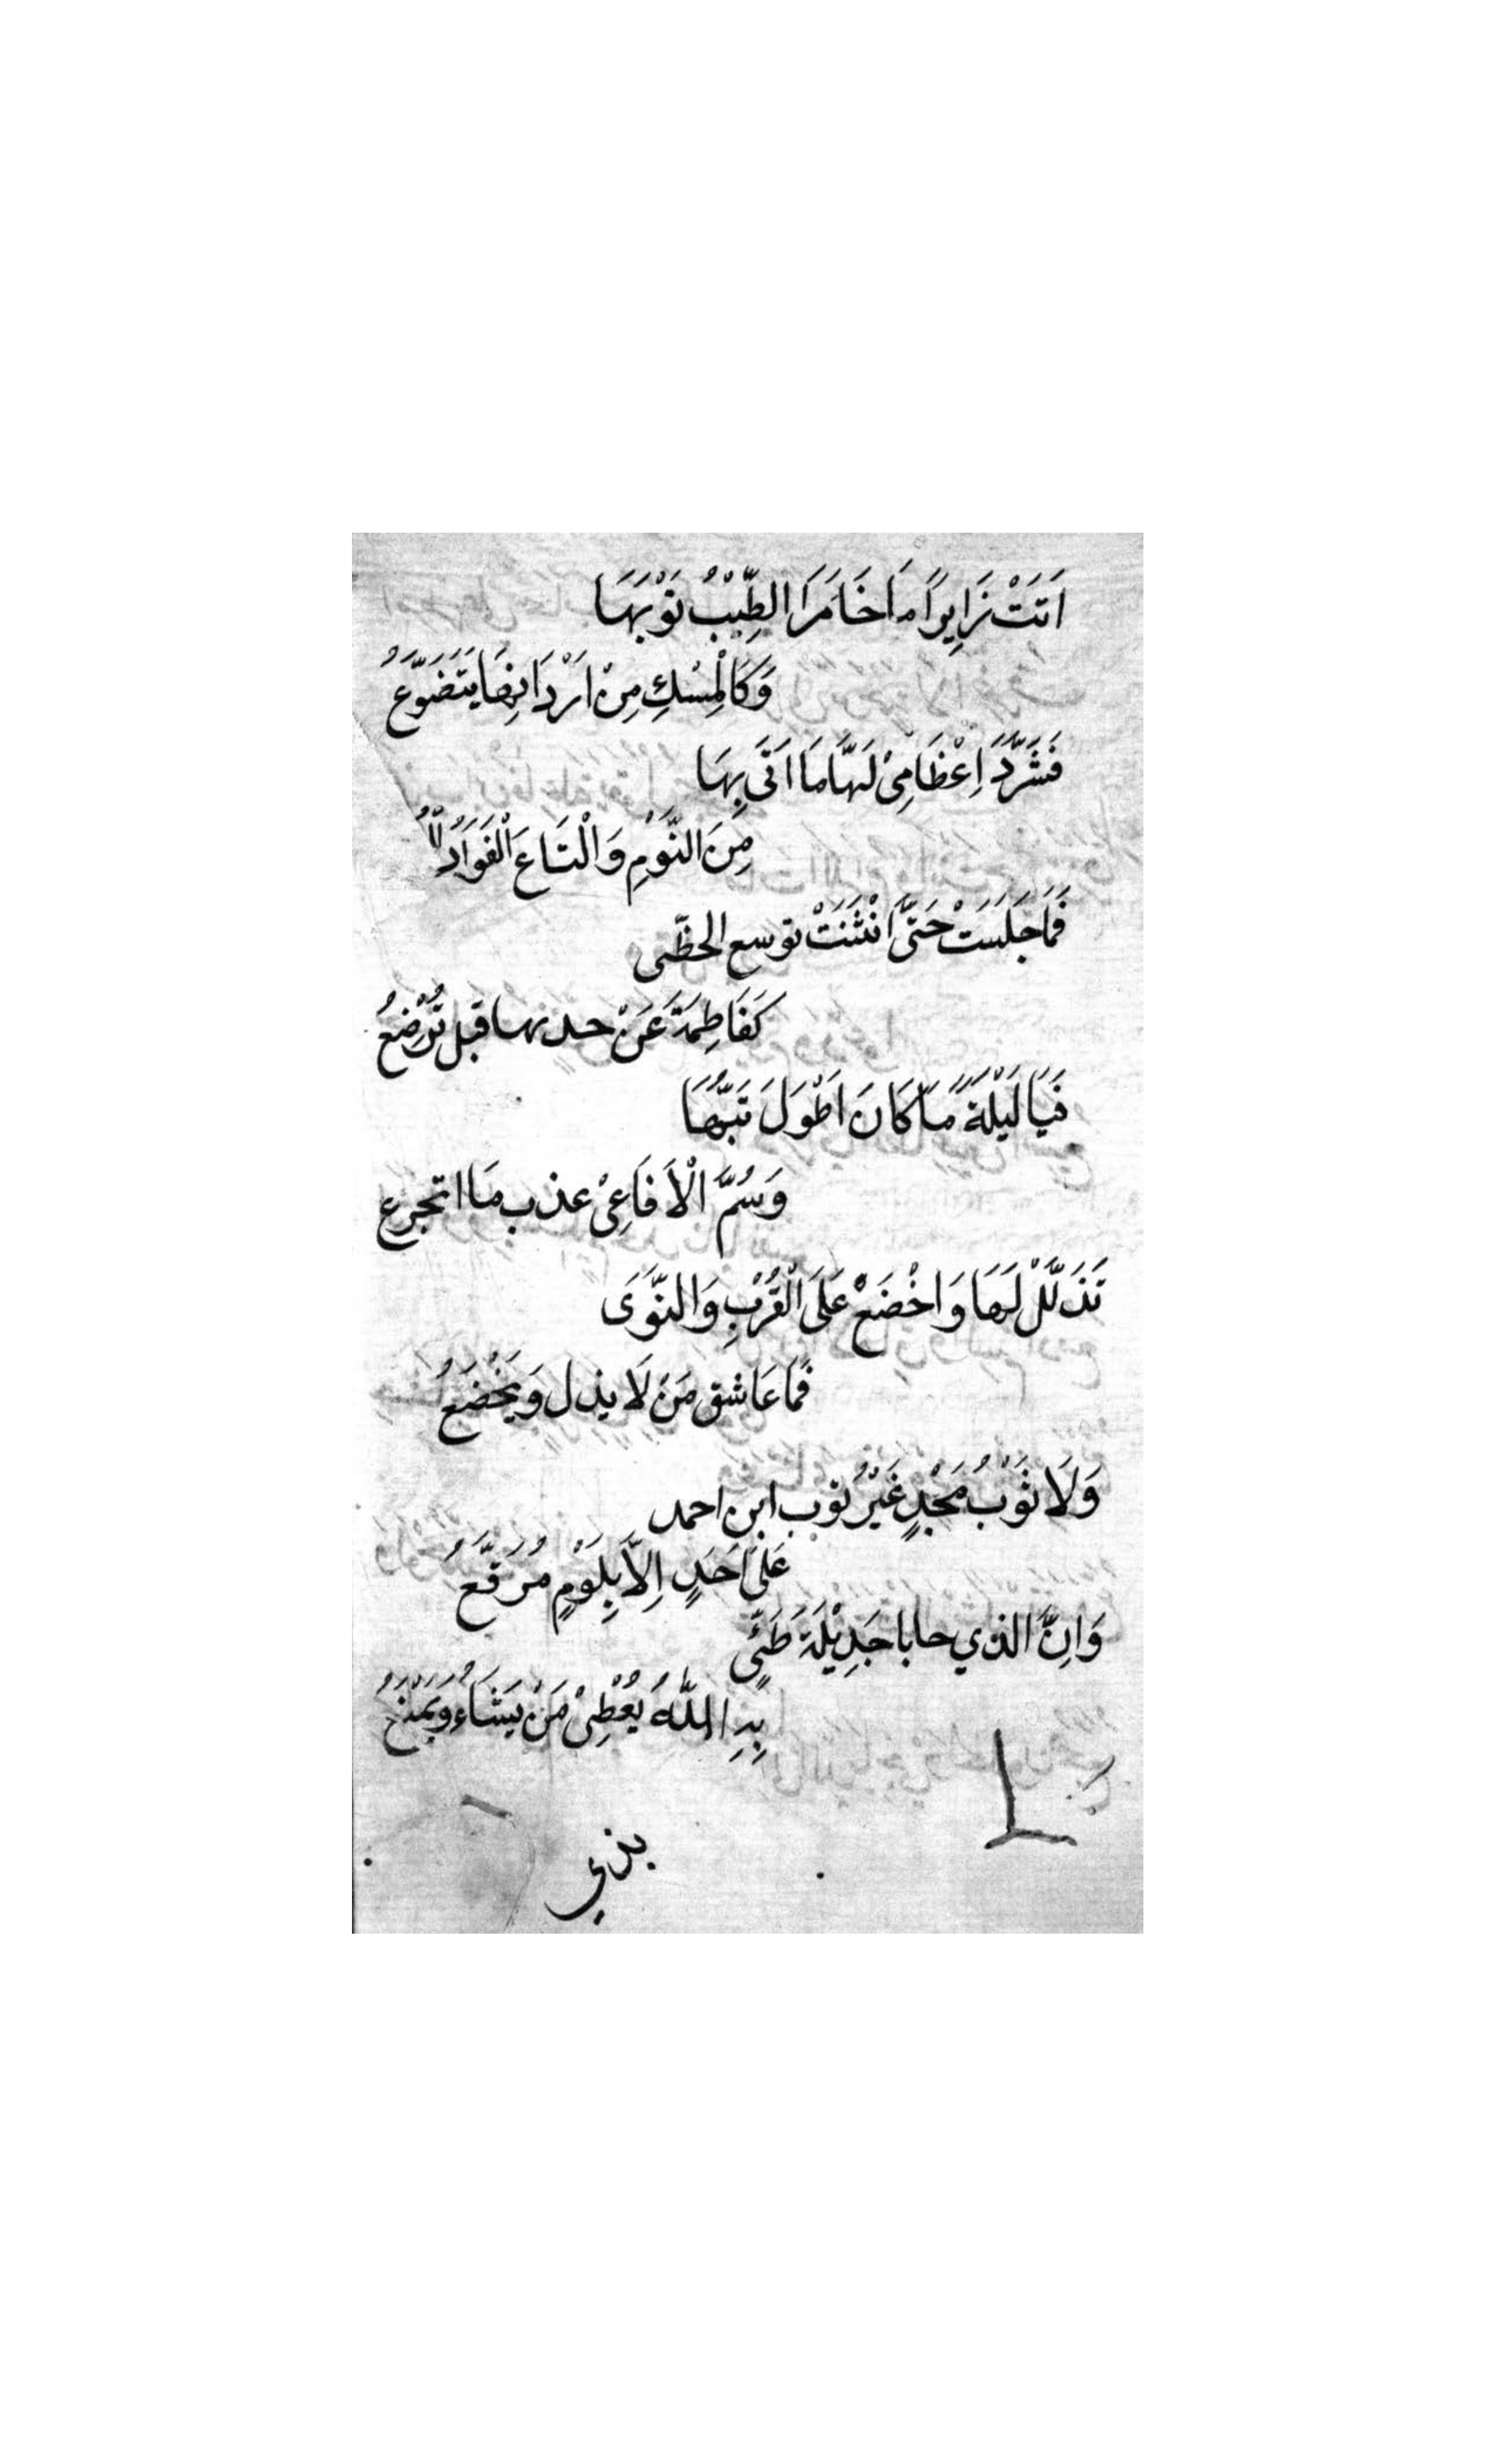 اَتَتْ زَايِراً مَا خَامَرَ الطِّيْبُ ثَوْبَهَا
وَكَالْمِسْكِ مِنْ اَرْدَانِهَا يَتَضَوَّعُ
فَشَرَّدَ اِعْظَامِىْ لَهَا مَا اَتَى بِهَا
مِنَ النَّوْمِ وَالْتَاعَ الْفَوَادُ
فَمَا جَلَسَتْ حَتَّى انْثَنَتْ توسع الخطى
كَفَاطِمَةَ عَنْ قبل تُرْضِعُ
فَيَا لَيْلَةً مَا كَانَ اَطْوَلَ
وَسُمَّ الْاَفَاعِىْ عذب مَا اتجرع
تَذَلَّلْ لَهَا وَاخْضَعْ عَلَى الْقُرْبِ وَالنَّوَى
فَمَا عَاشق مَنْ لَا يذل وَيَخْضَعُ
وَلَا ثَوْبُ مَجْدٍ غَيْرُ ثوب ابن احمد
عَلَى اَحَدٍ اِلَّا بِلَوْمٍ مُرَقَّعُ
وَاِنَّ الذي حابا جَدِيْلَةَ طَيِّئٍ
بِهِ اللّٰهُ يُعْطِىْ مَنْ يَشَاءُ وَيَمْنَعُ
بذي